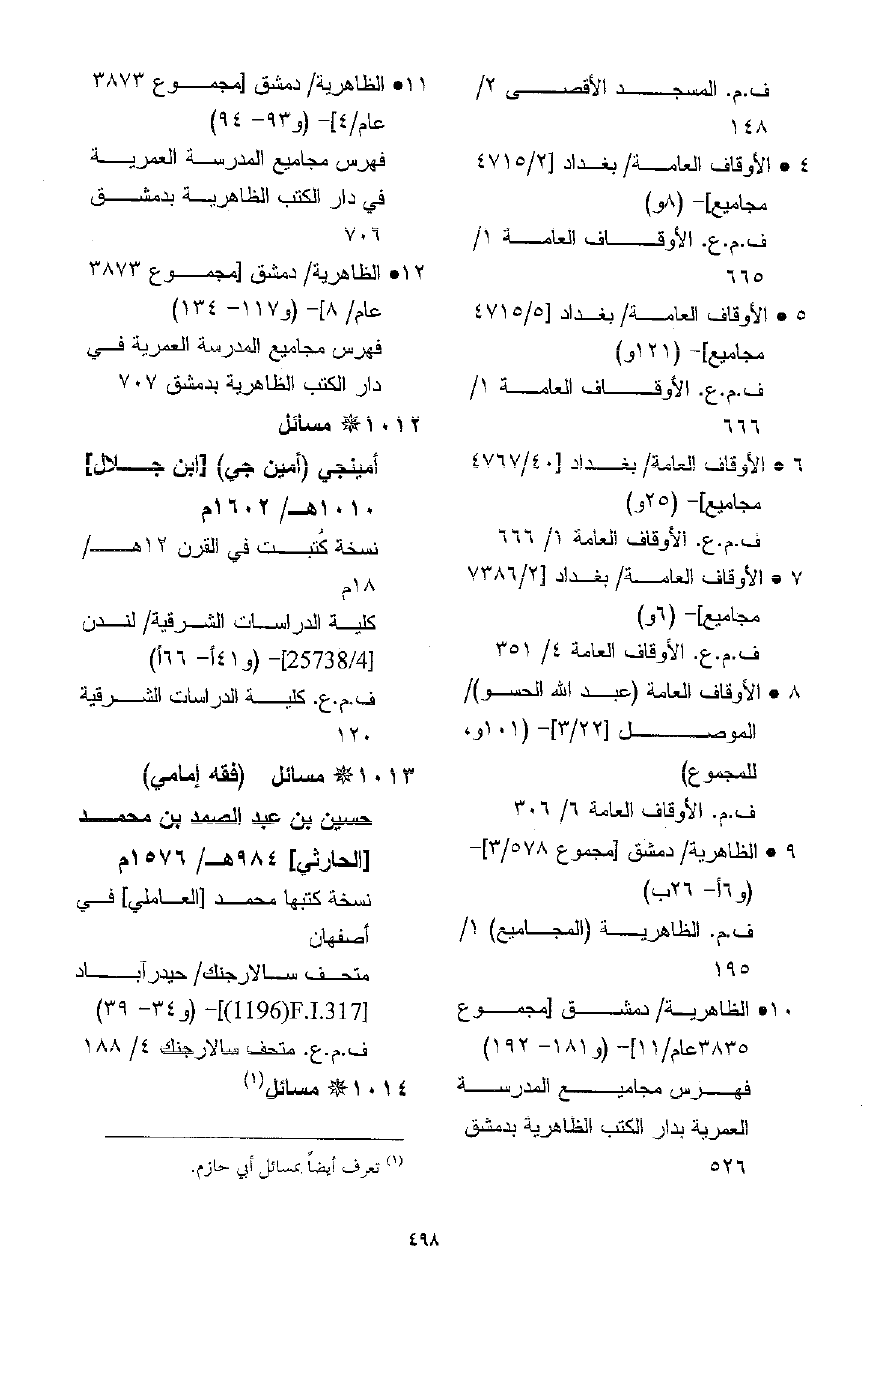 ف.م. المسجد الأقصى ٢/
١٤٨
٤ • الأوقاف العامة/ بغداد [٤٧١٥/٢
مجاميع]- (٨و)
ف.م.ع. الأوقاف العامة ١/
٦٦٥
٥ • الأوقاف العامة/ بغداد [٤٧١٥/٥
مجاميع]- (١٢١و)
ف.م.ع. الأوقاف العامة ١/
٦٦٦
٦ • الأوقاف العامة/ بغداد [٤٧٦٧/٤٠
مجاميع]- (٢٥و)
ف.م.ع. الأوقاف العامة ١/ ٦٦٦
٧ • الأوقاف العامة/ بغداد [٧٣٨٦/٢
مجاميع]- (٦و)
ف.م.ع. الأوقاف العامة ٤/ ٣٥١
٨ • الأوقاف العامة (عبد الله الحسو)/
الموصل [٣/٢٢]- (١٠١و،
للمجموع)
ف.م. الأوقاف العامة ٦/ ٣٠٦
٩ • الظاهرية/ دمشق [مجموع ٣/٥٧٨]-
(و٦أ- ٢٦ب)
ف.م. الظاهرية (المجاميع) ١/
١٩٥
١٠• الظاهرية/ دمشق [مجموع
٣٨٣٥عام/١١]- (و١٨١- ١٩٢)
فهرس مجاميع المدرسة
العمرية بدار الكتب الظاهرية بدمشق
٥٢٦
١١• الظاهرية/ دمشق [مجموع ٣٨٧٣
عام/٤]- (و٩٣- ٩٤)
فهرس مجاميع المدرسة العمرية
في دار الكتب الظاهرية بدمشق
٧٠٦
١٢• الظاهرية/ دمشق [مجموع ٣٨٧٣
عام/ ٨]- (و١١٧- ١٣٤)
فهرس مجاميع المدرسة العمرية في
دار الكتب الظاهرية بدمشق ٧٠٧
١٠١٢❋ مسائل
أمينجي (أمين جي) [ابن جلال]
١٠١٠هـ/ ١٦٠٢م
نسخة كُتبت في القرن ١٢هـ/
١٨م
كلية الدراسات الشرقية/ لندن
[25738/4]- (و٤١أ- ٦٦أ)
ف.م.ع. كلية الدراسات الشرقية
١٢٠
١٠١٣❋ مسائل (فقه إمامي)
حسين بن عبد الصمد بن محمد
[الحارثي] ٩٨٤هـ/ ١٥٧٦م
نسخة كتبها محمد [العاملي] في
أصفهان
متحف سالارجنك/ حيدرآباد
[1196)F.I.317)]- (و٣٤- ٣٩)
ف.م.ع. متحف سالارجنك ٤/ ١٨٨
١٠١٤❋ مسائل(١)
(١) تعرف أيضاً بمسائل أبي حازم.
٤٩٨